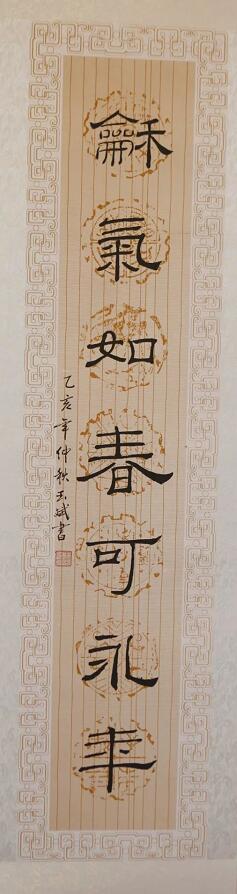 龢氣如春可永年
乙亥年仲秋玉斌書